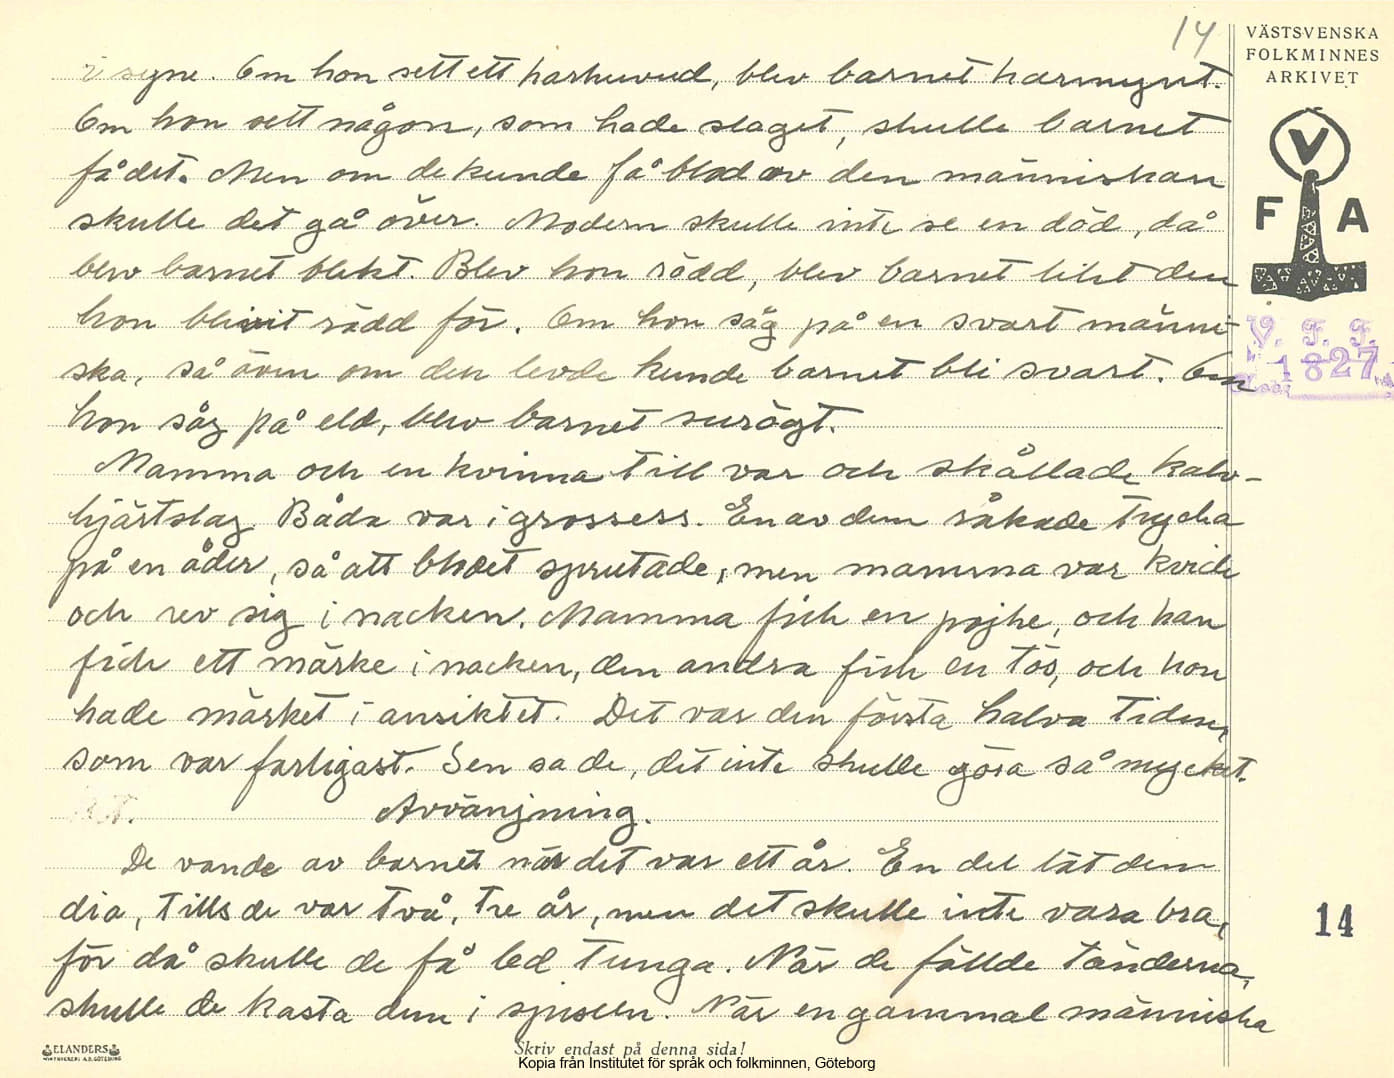 14
VÄSTSVENSKA
FOLKMINNES
ARKIVET
i syne. Om hon sett ett harhuvud, blev barnet harmynt.
Om hon sett någon, som hade slaget, skulle barnet
få det. Men om de kunde få blod av den människan
skulle det gå över. Modern skulle inte se en död, då
blev barnet blekt. Blev hon rädd, blev barnet likt den
hon blivit rädd för. Om hon såg på en svart männi-
ska, så även om den levde kunde barnet bli svart. Om
hon såg på eld, blev barnet surögt.
Mamma och en kvinna till var och skållade kalv-
hjärtslag. Båda var i grossess. En av dem råkade trycka
på en åder, så att blodet sprutade, men mamma var kvick
och rev sig i nacken. Mamma fick en pojke, och han
fick ett märke i nacken, den andra fick en tös, och hon
hade märket i ansiktet. Det var den första halva tiden,
som var farligast. Sen sa de, det inte skulle göra så mycket.
Avvänjning.
De vande av barnet när det var ett år. En del lät dem
dia, tills de var två, tre år, men det skulle inte vara bra,
för då skulle de få led tunga. När de fällde tänderna,
skulle de kasta dem i spiseln. När en gammal människa
V
F A
V. F. F.
1827
14
ELANDERS
Skriv endast på denna sida!
Kopia från Institutet för språk och folkminnen, Göteborg